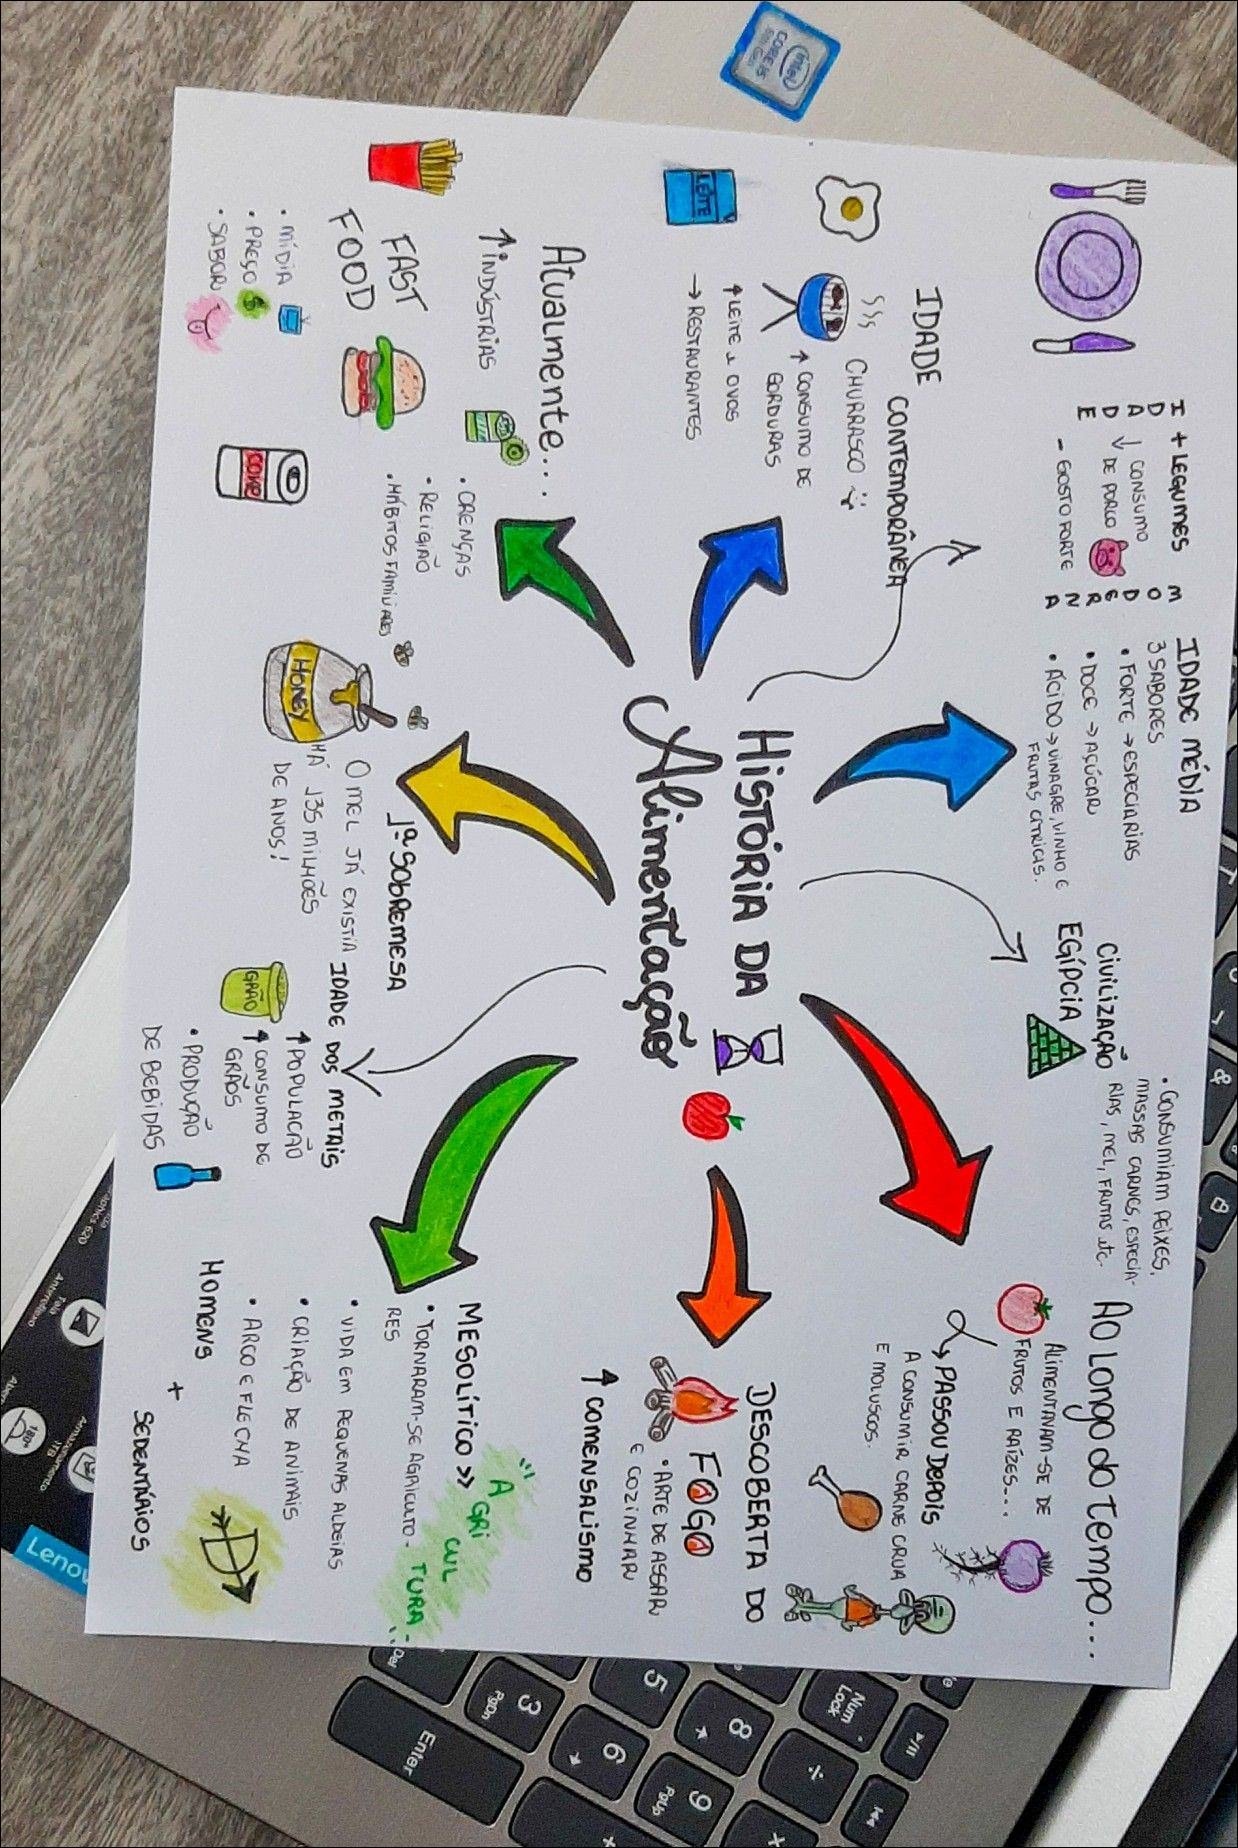 HISTÓRIA DA
Alimentação
Ao longo do tempo...
Alimentavam-se de
frutos e raízes...
Passou depois
a consumir carne crua
e moluscos.
Descoberta do
FOGO
• Arte de assar
e cozinhar
↑ Comensalismo
Mesolítico >>
A
GRI
CUL
TURA
• Tornaram-se agriculto-
res
• Vida em pequenas aldeias
• Criação de animais
• Arco e flecha
Homens
+
Sedentários
Idade dos metais
↑ População
↑ Consumo de
grãos
• Produção
de bebidas
GRÃO
1ª Sobremesa
O mel já existia
há 135 milhões
de anos!
HONEY
Civilização
Egípcia
• Consumiam peixes,
massas carnes, especia-
rias, mel, frutas etc.
IDADE MÉDIA
3 sabores
• Forte → especiarias
• Doce → açúcar
• Ácido → vinagre, vinho e
frutas cítricas.
IDADE
MODERNA
+ Legumes
↓ Consumo
de porco
- Gosto forte
IDADE
CONTEMPORÂNEA
Churrasco
↑ Consumo de
gorduras
↑ Leite e ovos
→ Restaurantes
LEITE
Atualmente...
↑ Indústrias
• Crenças
• Religião
• Hábitos familiares
FAST
FOOD
• Mídia
• Preço
$
• Sabor
COKE
intel
CORE i5
Lenovo
Enter
Num
Lock
Del
3
PgDn
5
6
8
9
PgUp
180°
1TB